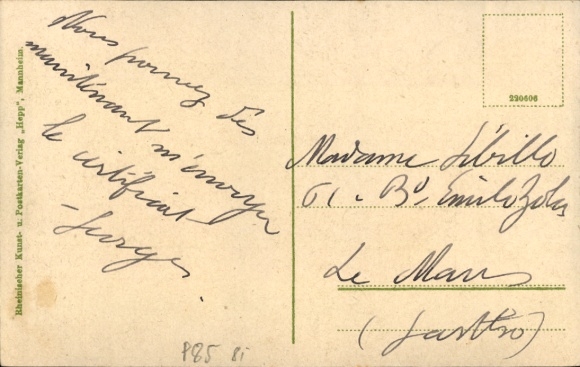 Rheinischer Kunst- u. Postkarten-Verlag „Hepp", Mannheim.
Vous pouvez dès
maintenant m'envoyer
le certificat
- Serge.
220606
Madame Sibille
61 - Bd. Emile Zola
Le Mans
(Sarthe)
P85 8i